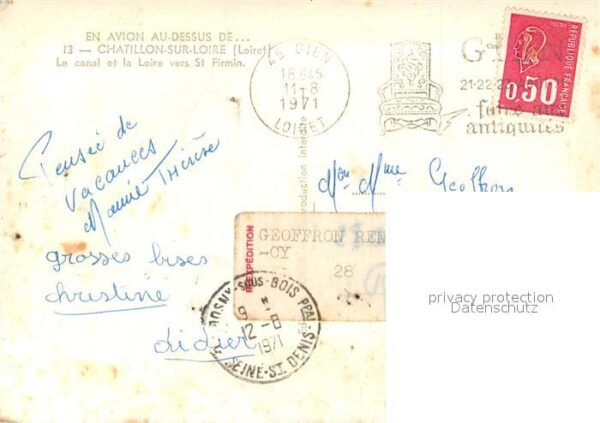 EN AVION AU-DESSUS DE...
13 — CHATILLON-SUR-LOIRE (Loiret)
Le canal et la Loire vers St Firmin.
45 GIEN
18H45
11-8
1971
LOIRET
GIEN
21-22-2
foire aux
antiquités
REPUBLIQUE FRANCAISE
0,50
Pensée de
vacances
Marie Thérèse
grosses bises
christine
Didier
Mr Mme Geoffron
RÉEXPÉDITION
GEOFFRON REN
-CY
28
ROSNY-SOUS-BOIS PPAL
12-8
1971
SEINE-ST DENIS
privacy protection
Datenschutz